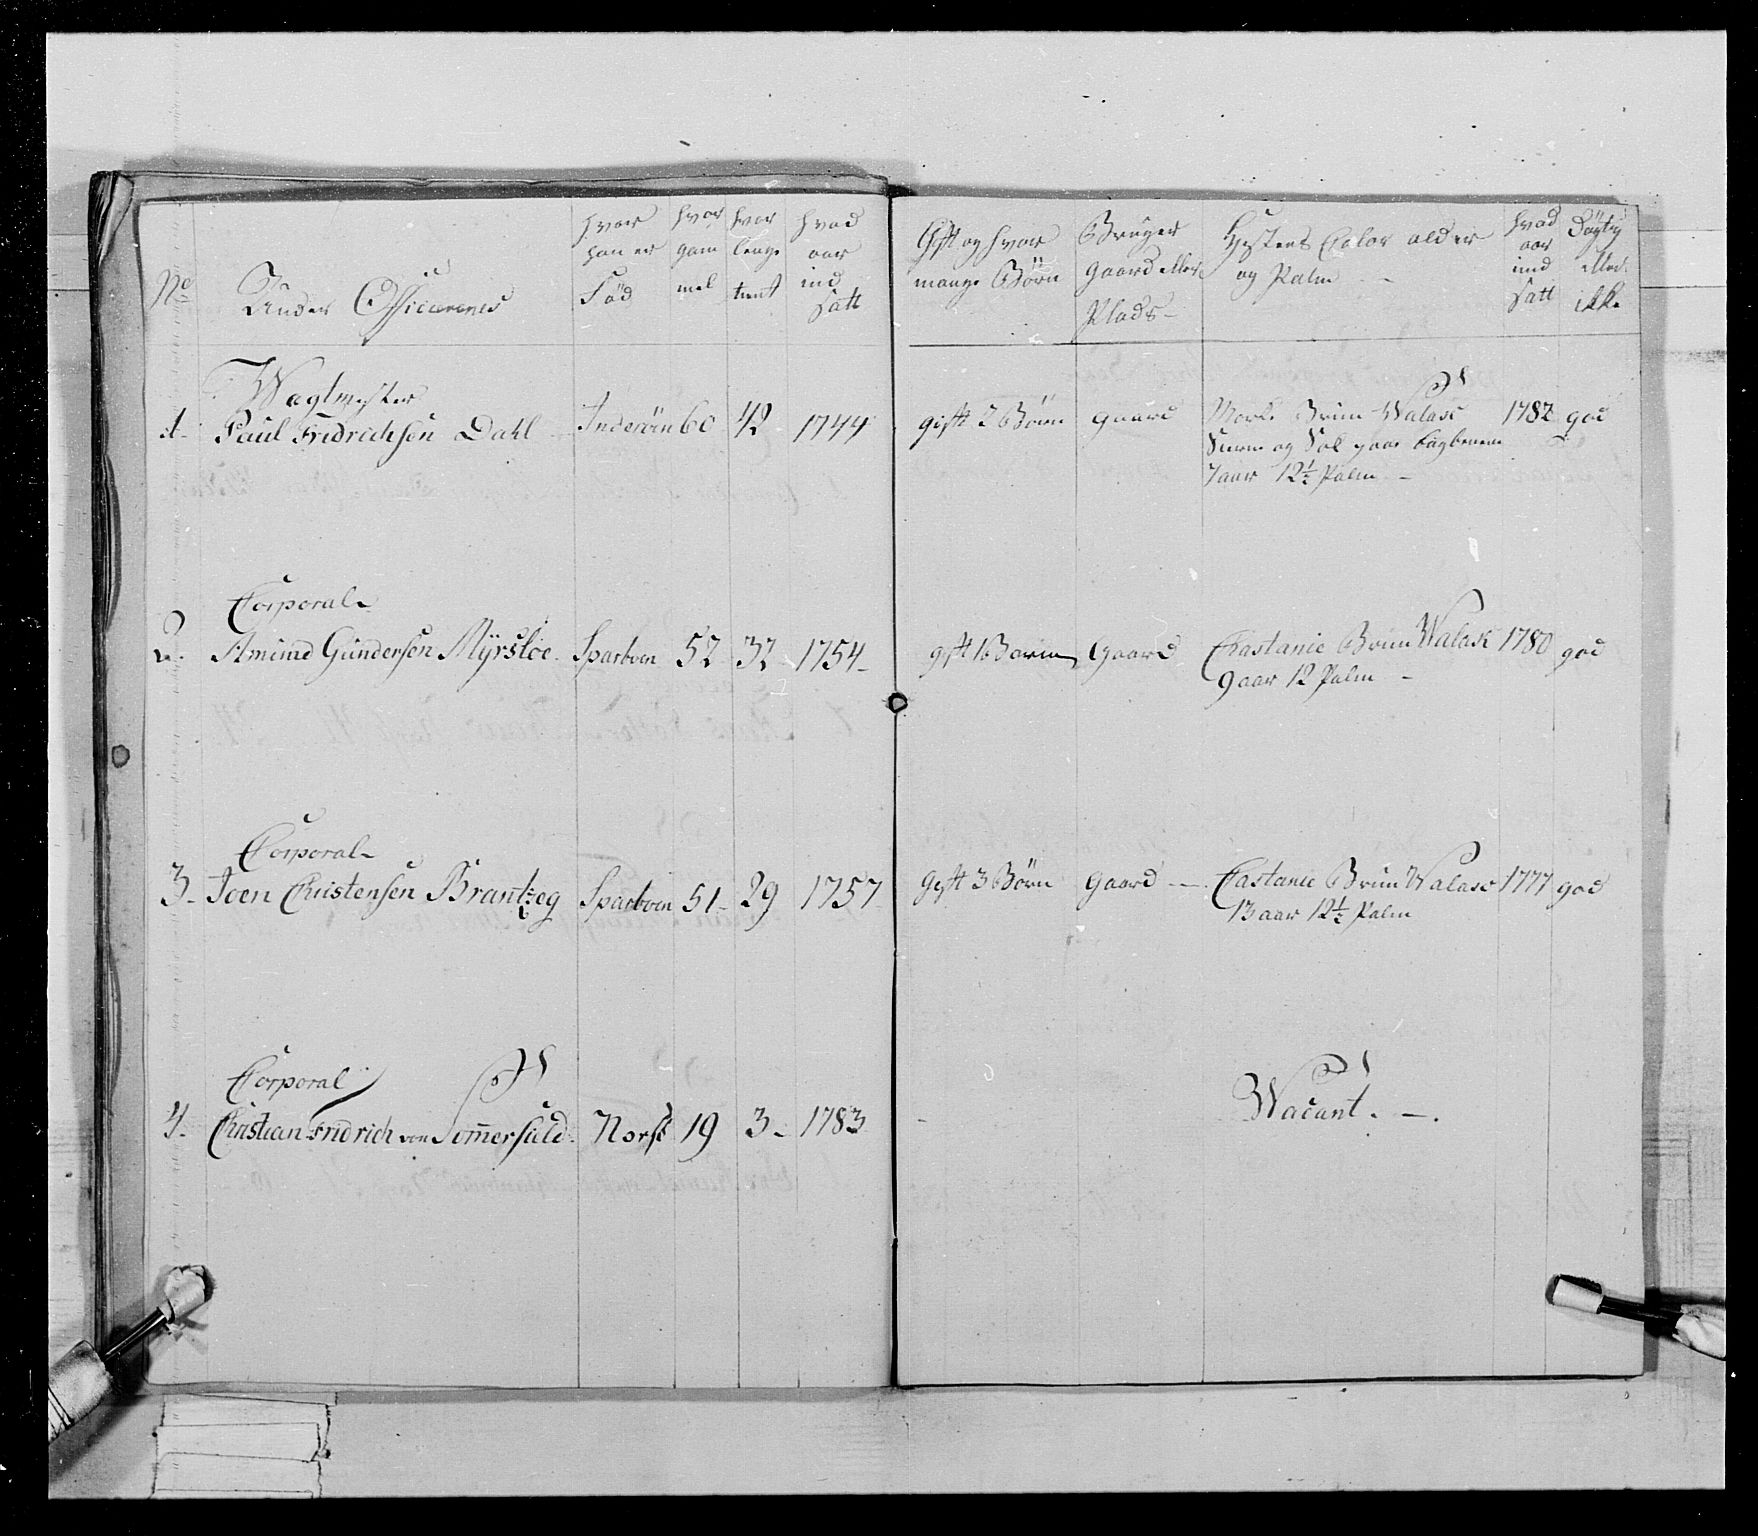 No
Under Officerernes
hvor han er Föd
hvor gam mel
hvor lenge tient
hvad aar ind satt
Gift og hvor mange Börn
Bruger Gaard eller Plads-
Hestens Color alder og Palm - -
hvad aar ind satt
Dögtig eller ikke
Wagtmester
1. Paul Fridrichsen Dahl Inderöin 60 42 1744 gift 2 Börn gaard Mork Brun Walask 1782 god
og Sol paa bagbenene
7 aar 12½ Palm -
Corporal
2. Amund Gundersen Myrsloe Sparboen 52 32 1754 gift 1 Barn gaard Castanie Brun Walask 1780 god
9 aar 12 Palm -
Corporal
3. Joen Christensen Brantzeg Sparboen 51 29 1757 gift 3 Börn gaard - Castanie Brun Walask 1777 god
13 aar 12½ Palm
Corporal
4. Christian Fridrich von Sommerfald Norsk 19 3 1783 - Wacant. -.